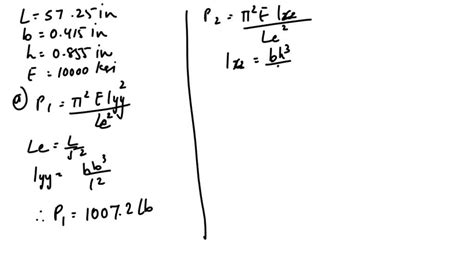 L = 57.25 in
b = 0.415 in
h = 0.855 in
E = 10000 ksi
a) P₁ = π² E Iyy² / Le²
Le = L / √2
Iyy = hb³ / 12
∴ P₁ = 1007.2 lb
P₂ = π² E Ixx / Le²
Ixx = bh³ /